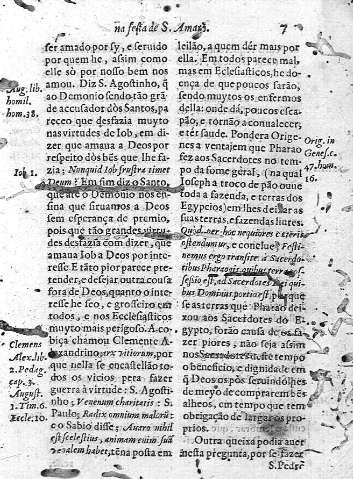 na festa de S. Amaro.
7
ser amado por sy, e seruido
por quem he, assim como
elle sò por nosso bem nos
amou. Diz S. Agostinho, q̃
ao Demonio sendo tão grã-
de accusador dòs Santos, pa-
receo que desfazia muyto
nas virtudes de Iob, em di-
zer que amaua a Deos por
respeito dòs bés que lhe fa-
zia: Nonquid Iob frustra timet
Deum? Em sim diz o Santo,
que atè o Demonio nos en-
sina que siruamos a Deos
sem esperança de premio,
pois que tão grandes virtu-
des desfazia com dizer, que
amaua Iob a Deos por inte-
resse E tão pior parece pre-
tender, e desejar outra cousa
fora de Deos, quanto o inte-
resse he seo, e grosseiro em
todos, e nos Ecclesiasticos
muyto mais perigoso. A co-
biça chamou Clemente A-
lexandrino; arx vitiorum, por
que nella se encastellão to-
dos os vicios pera fazer
guerra à virtude: S. Agosti-
nho; Venenum charitatis: S.
Paulo; Radix omnium malorũ:
e o Sabio disse; Auaro nihil
est scelestius, animam enim suã
venalem habet, tẽna posta em
Aug. lib.
homil.
hom. 38.
Iob 1.
Clemens
Alex. lib.
2. Pedag.
cap. 3.
August.
1. Tim. 6.
Eccle. 10.
leilão, a quem dér mais por
ella. Em todos parece mal,
mas em Ecclesiasticos, he do-
ença de que poucos sarão,
sendo muytos os enfermos
della: onde dá, poucos esca-
pão, e tornão a conualecer,
e ter saude. Pondera Orige-
nes a ventajem que Pharao
fez aos Sacerdotes no tem-
po da fome geral, (na qual
Ioseph a troco de pão ouue
toda a fazenda, e terras dos
Egypcios) em lhes deixar as
suas terras, e fazendas liures.
ostendunur, e conclue; Festi-
nemus ergo transire à Sacerdo-
tibus Pharaonis, quibus terra pos-
sessio est, ad Sacerdotes Dei qui-
bus Dominus portio est, por que
se as terras que Pharao dei-
xou aos Sacerdotes do E-
gypto, forão causa de os fa-
zer piores, não seja assim
nos Sacerdotes deste tempo
o beneficio, e dignidade em
q̃ Deos os pòs seruindolhes
de meyo de comprarem ou-
tros de
alheos, em tempo que tem
obrigação de largar os pro-
prios.
Outra queixa podia auer
nesta pregunta, por se fazer
S. Pedro
Orig. in
Genes. c.
47. hom.
16.